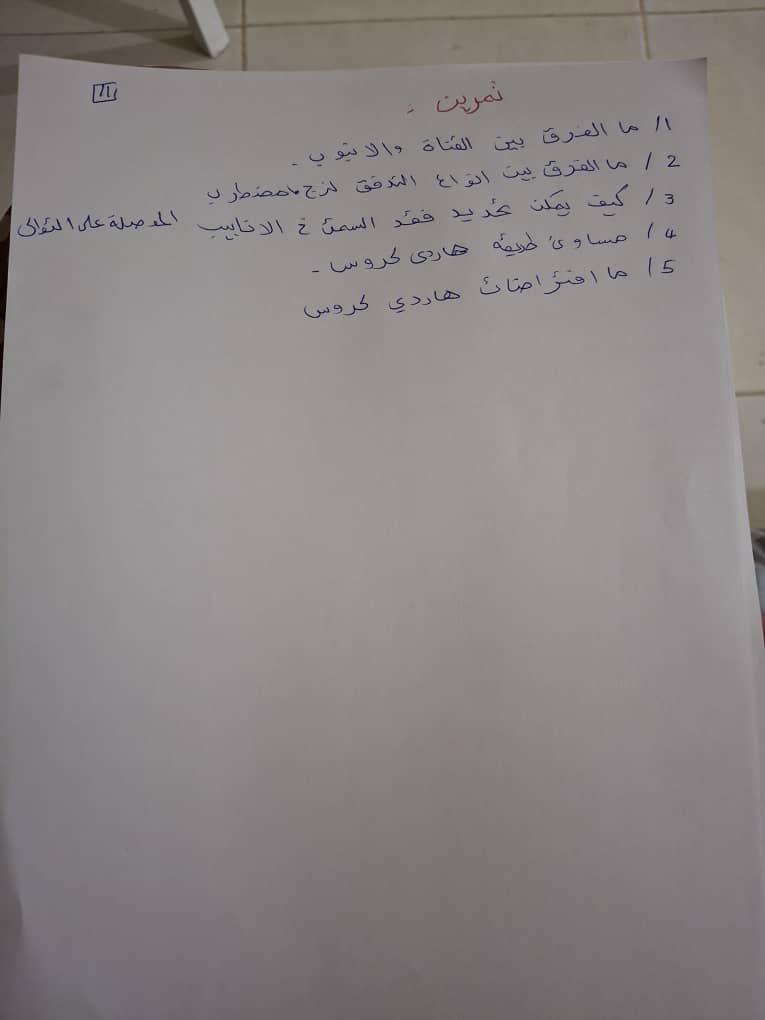 11
تمرين :
1/ ما الفرق بين القناة والانبوب .
2/ ما الفرق بين انواع التدفق لزج، مضطرب
3/ كيف يمكن تحديد فقد السمت في الانابيب الموصلة على التوالى
4/ مساوئ طريقه هاردى كروس .
5/ ما افتراضات هاردي كروس